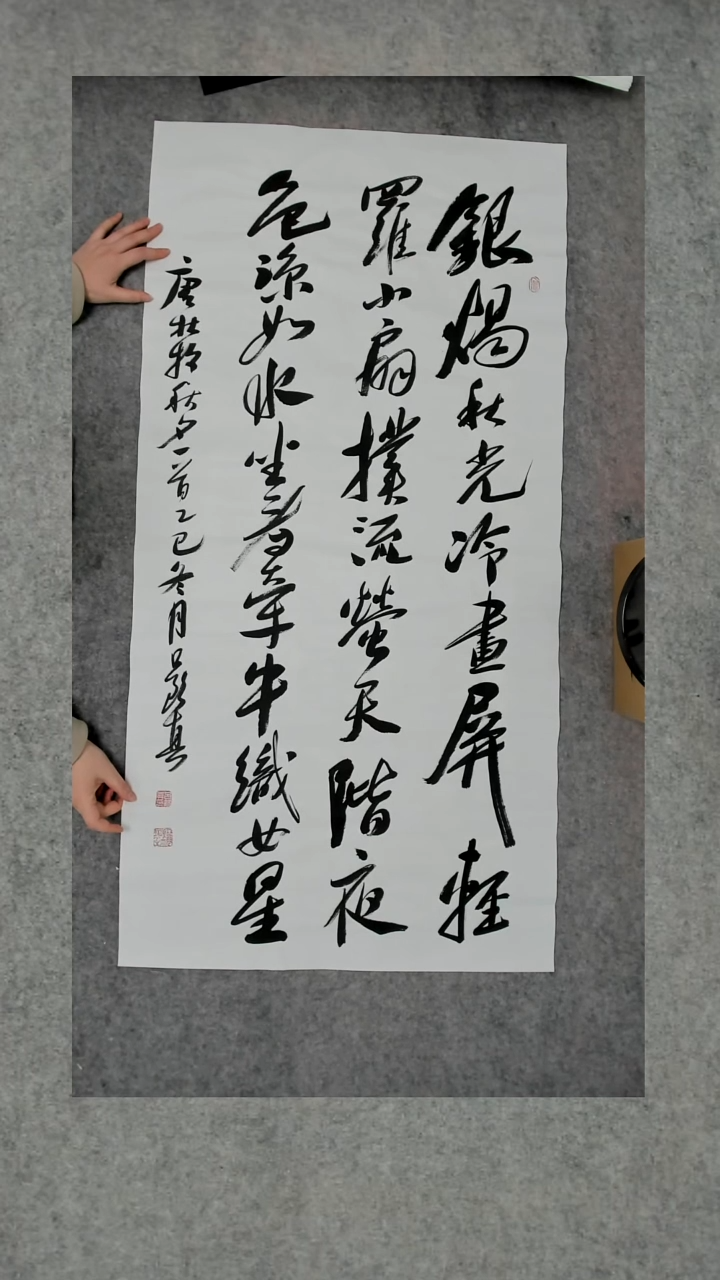 銀燭秋光冷畫屏輕
羅小扇撲流螢天階夜
色涼如水坐看牽牛織女星
唐杜牧秋夕一首乙巳冬月真